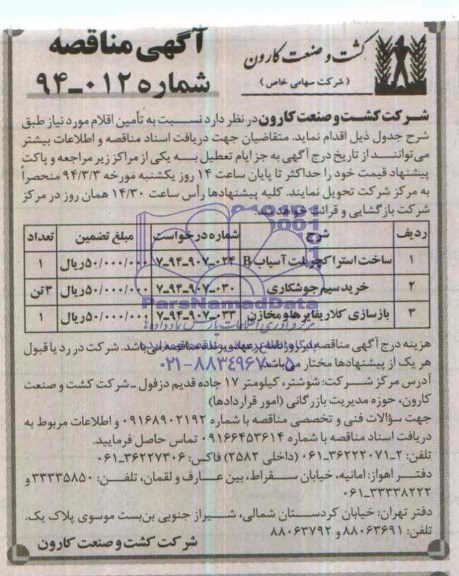 آگهی مناقصه
شماره ۰۱۲-۹۴
کشت و صنعت کارون
( شرکت سهامی خاص )
شرکت کشت و صنعت کارون در نظر دارد نسبت به تأمین اقلام مورد نیاز طبق
شرح جدول ذیل اقدام نماید. متقاضیان جهت دریافت اسناد مناقصه و اطلاعات بیشتر
می‌توانند از تاریخ درج آگهی به جز ایام تعطیل به یکی از مراکز زیر مراجعه و پاکت
پیشنهاد قیمت خود را حداکثر تا پایان ساعت ۱۴ روز یکشنبه مورخه ۹۴/۳/۳ منحصراً
به مرکز شرکت تحویل نمایند. کلیه پیشنهادها رأس ساعت ۱۴/۳۰ همان روز در مرکز
شرکت بازگشایی و قرائت خواهد شد.
ردیف شرح شماره درخواست مبلغ تضمین تعداد
۱ ساخت استراکچر پلت آسیاب B ۷-۹۴-۹۰۷-۰۲۴ ۵۰/۰۰۰/۰۰۰ ریال ۱
۲ خرید سیم جوشکاری ۷-۹۴-۹۰۷-۰۳۰ ۵۰/۰۰۰/۰۰۰ ریال ۳ تن
۳ بازسازی کلاریفایرها و مخازن ۷-۹۴-۹۰۷-۰۳۳ ۵۰/۰۰۰/۰۰۰ ریال ۱
ParsNamadData
۰۲۱-۸۸۳۴۹۶۷۰-۵
هزینه درج آگهی مناقصه می‌باشد. شرکت در رد یا قبول
هر یک از پیشنهادها مختار می‌باشد.
آدرس مرکز شرکت: شوشتر، کیلومتر ۱۷ جاده قدیم دزفول - شرکت کشت و صنعت
کارون، حوزه مدیریت بازرگانی (امور قراردادها)
جهت سؤالات فنی و تخصصی مناقصه با شماره ۰۹۱۶۸۹۰۲۱۹۲ و اطلاعات مربوط به
دریافت اسناد مناقصه با شماره ۰۹۱۶۶۴۵۳۶۱۴ تماس حاصل فرمایید.
تلفن: ۲-۳۶۲۲۲۰۷۱-۰۶۱ (داخلی ۲۵۸۲) فاکس: ۳۶۲۲۷۳۰۶-۰۶۱
دفتر اهواز: امانیه، خیابان سقراط، بین عارف و لقمان، تلفن: ۳۳۳۳۵۸۵۰ و
۰۶۱-۳۳۳۳۸۲۲۲
دفتر تهران: خیابان کردستان شمالی، شیراز جنوبی بن‌بست موسوی پلاک یک.
تلفن: ۸۸۰۶۳۶۹۱ و ۸۸۰۶۳۷۹۲
شرکت کشت و صنعت کارون